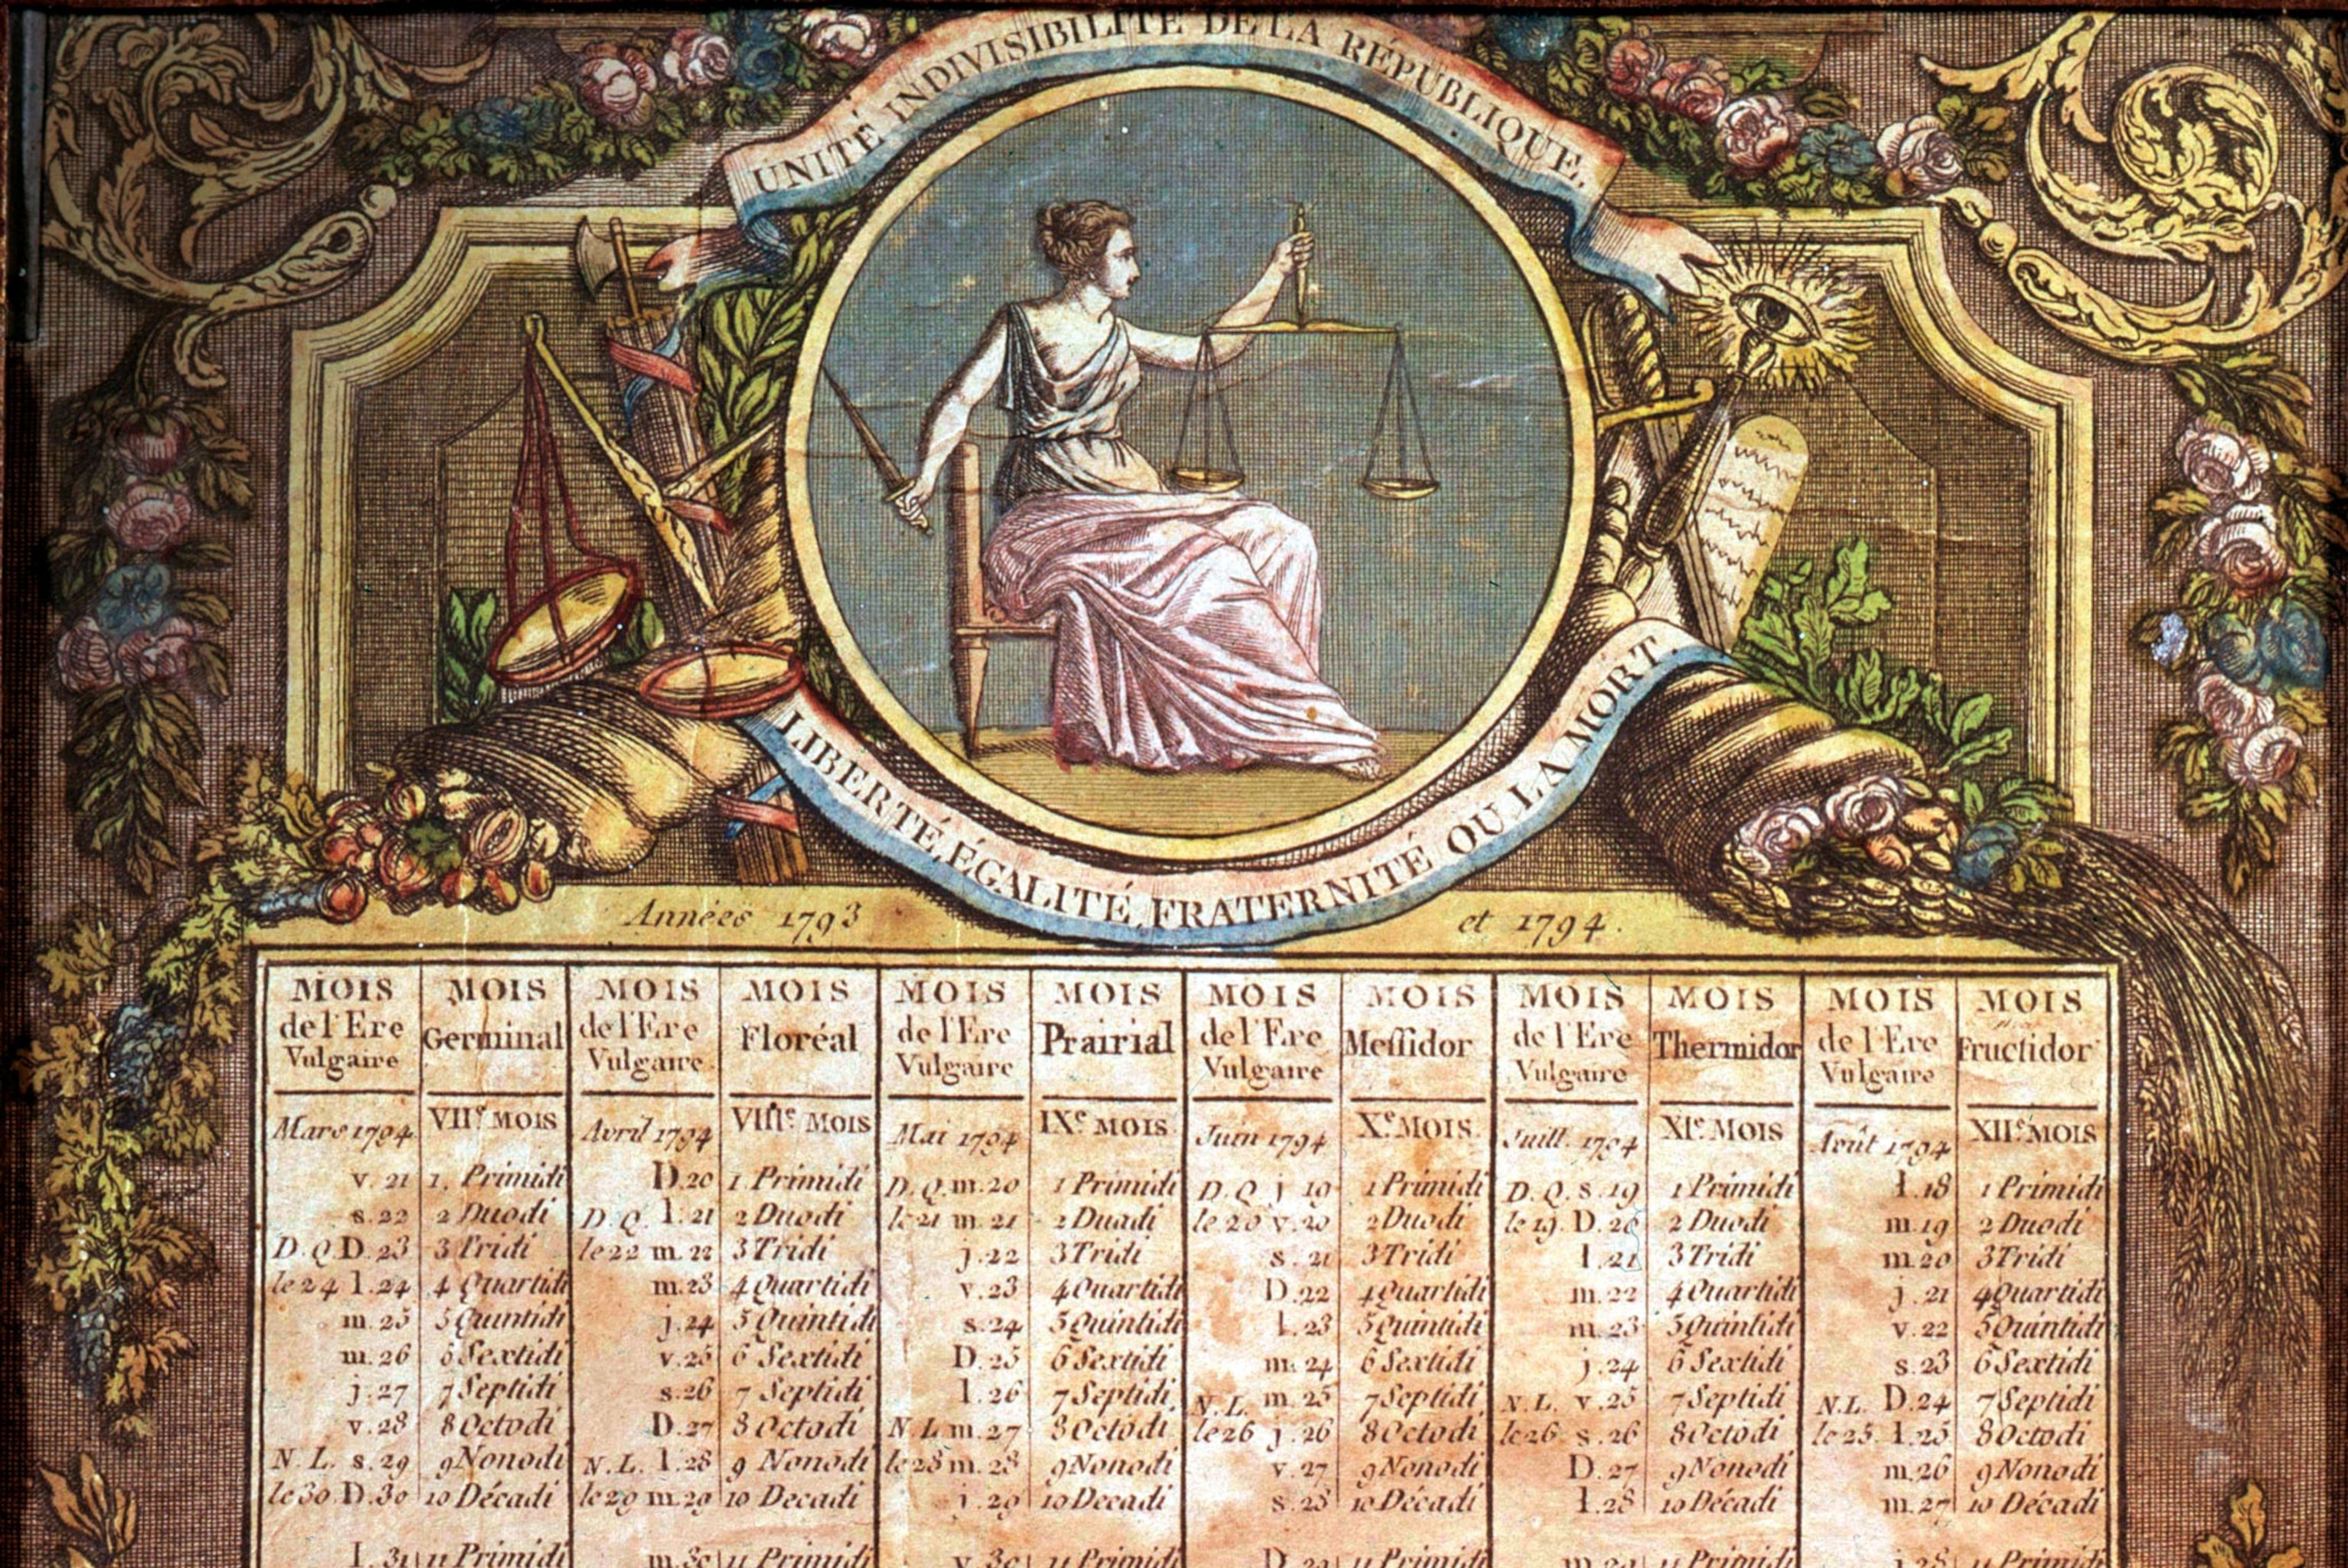 UNITÉ INDIVISIBILITÉ DE LA RÉPUBLIQUE.
LIBERTÉ, ÉGALITÉ, FRATERNITÉ OU LA MORT.
Années 1793 et 1794.
MOIS MOIS MOIS MOIS MOIS MOIS MOIS MOIS MOIS MOIS MOIS MOIS
de l'Ere Germinal de l'Ere Floréal de l'Ere Prairial de l'Ere Meſſidor de l'Ere Thermidor de l'Ere Fructidor
Vulgaire Vulgaire Vulgaire Vulgaire Vulgaire Vulgaire
Mars 1794 VIIe MOIS Avril 1794 VIIIe MOIS Mai 1794 IXe MOIS Juin 1794 Xe MOIS Juill. 1794 XIe MOIS Août 1794 XIIe MOIS
v. 21 1. Primidi D. 20 1 Primidi D. Q. m. 20 1 Primidi D. Q. j. 19 1 Primidi D. Q. s. 19 1 Primidi l. 18 1 Primidi
s. 22 2 Duodi D. Q. l. 21 2 Duodi le 21 m. 21 2 Duodi le 20 v. 20 2 Duodi le 19. D. 20 2 Duodi m. 19 2 Duodi
D. Q D. 23 3 Tridi le 22 m. 22 3 Tridi j. 22 3 Tridi s. 21 3 Tridi l. 21 3 Tridi m. 20 3 Tridi
le 24 l. 24 4 Quartidi m. 23 4 Quartidi v. 23 4 Quartidi D. 22 4 Quartidi m. 22 4 Quartidi j. 21 4 Quartidi
m. 25 5 Quintidi j. 24 5 Quintidi s. 24 5 Quintidi l. 23 5 Quintidi m. 23 5 Quintidi v. 22 5 Quintidi
m. 26 6 Sextidi v. 25 6 Sextidi D. 25 6 Sextidi m. 24 6 Sextidi j. 24 6 Sextidi s. 23 6 Sextidi
j. 27 7 Septidi s. 26 7 Septidi l. 26 7 Septidi N. L. m. 25 7 Septidi N. L. v. 25 7 Septidi N. L. D. 24 7 Septidi
v. 28 8 Octodi D. 27 8 Octodi N. L. m. 27 8 Octodi le 26 j. 26 8 Octodi le 26 s. 26 8 Octodi le 25. l. 25 8 Octodi
N. L. s. 29 9 Nonodi N. L. l. 28 9 Nonodi le 28 m. 28 9 Nonodi v. 27 9 Nonodi D. 27 9 Nonodi m. 26 9 Nonodi
le 30 D. 30 10 Décadi le 29 m. 29 10 Decadi j. 29 10 Decadi s. 28 10 Décadi l. 28 10 Décadi m. 27 10 Décadi
l. 31 11 Primidi m. 30 11 Primidi v. 30 11 Primidi D. 29 11 Primidi m. 29 11 Primidi j. 28 11 Primidi